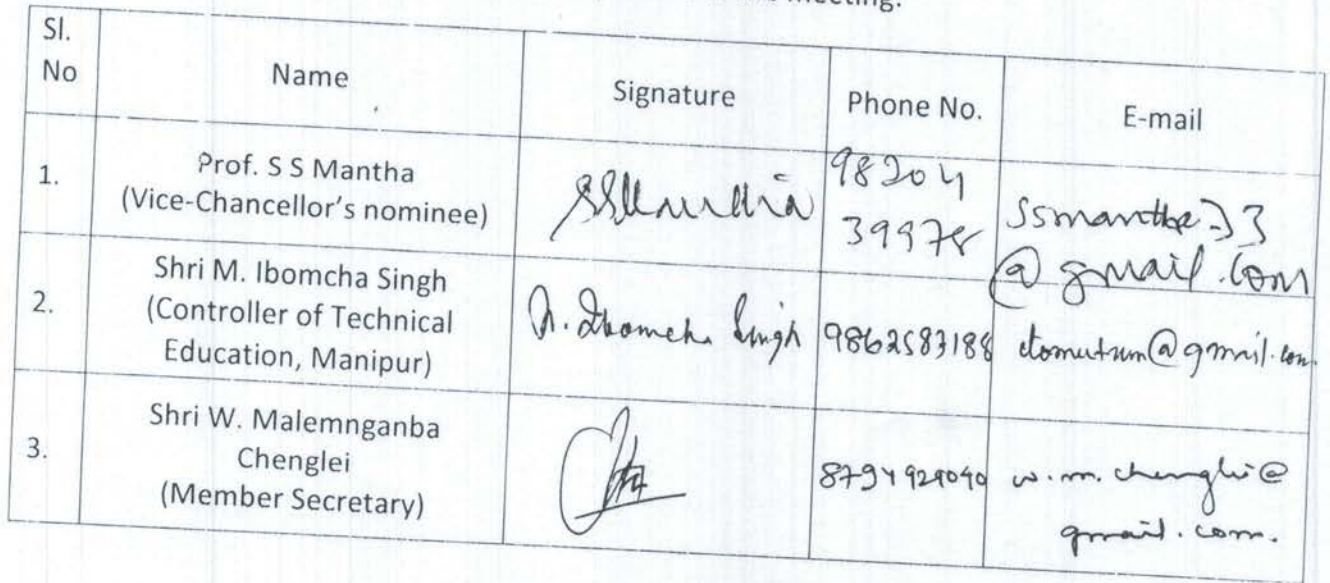 meeting.
Sl.
No
Name
Signature
Phone No.
E-mail
1.
Prof. S S Mantha
(Vice-Chancellor's nominee)
SSMantha
98204
39978
ssmantha33
@gmail.com
2.
Shri M. Ibomcha Singh
(Controller of Technical
Education, Manipur)
M. Ibomcha Singh
9862583188
@gmail.com.
3.
Shri W. Malemnganba
Chenglei
(Member Secretary)
8794929090
w.m.chenglei@
gmail.com.